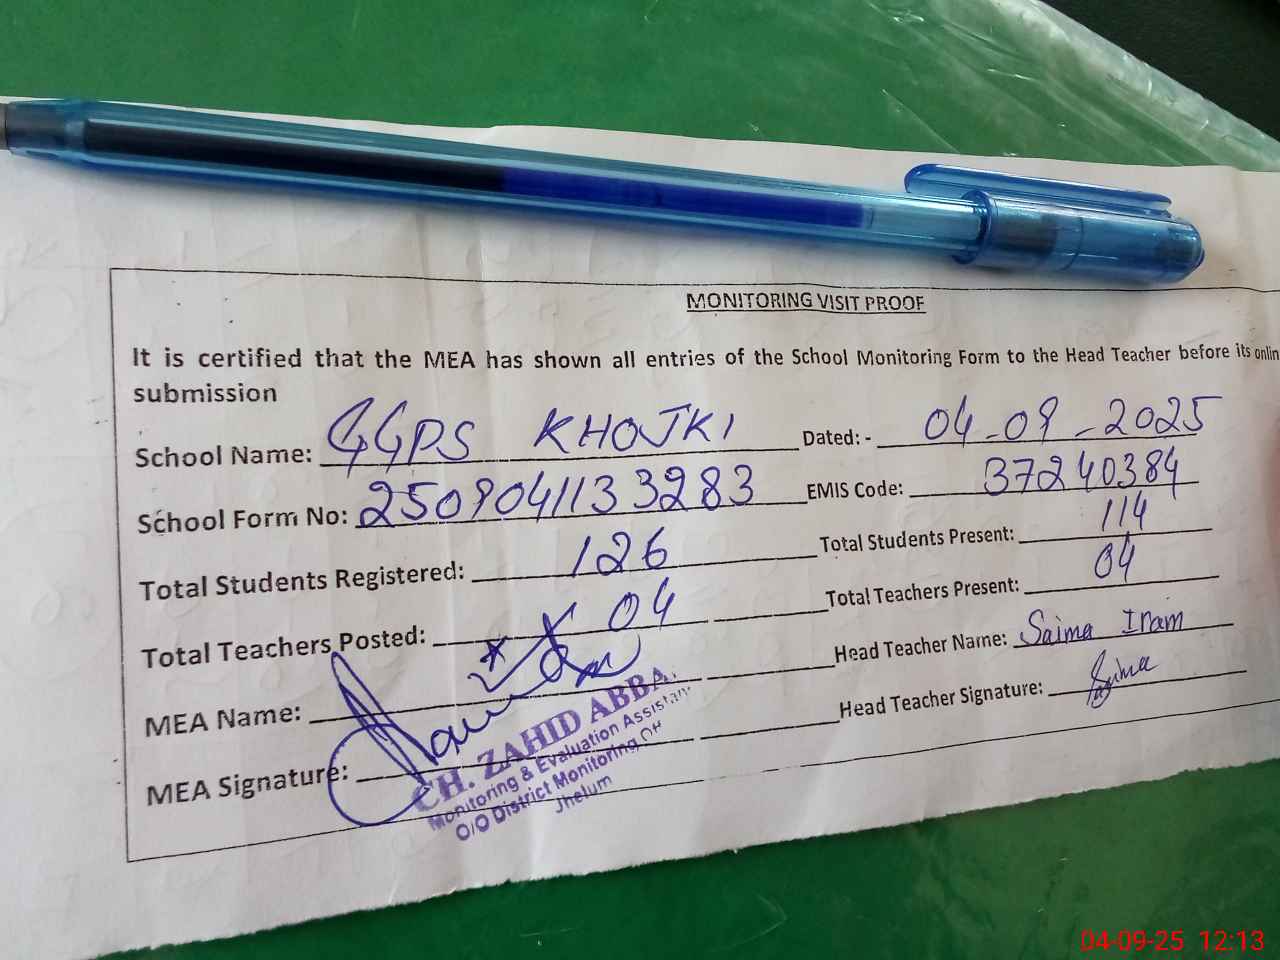 MONITORING VISIT PROOF
It is certified that the MEA has shown all entries of the School Monitoring Form to the Head Teacher before its onlin
submission
School Name: GGPS KHOJKI Dated: - 04-09-2025
School Form No: 2509041133283 EMIS Code: 37240384
Total Students Registered: 126 Total Students Present: 114
Total Teachers Posted: 04 Total Teachers Present: 04
MEA Name: Head Teacher Name: Saima Iram
MEA Signature: Head Teacher Signature: Saima
CH. ZAHID ABBA
Monitoring & Evaluation Assistant
O/O District Monitoring Of
Jhelum
04-09-25 12:13